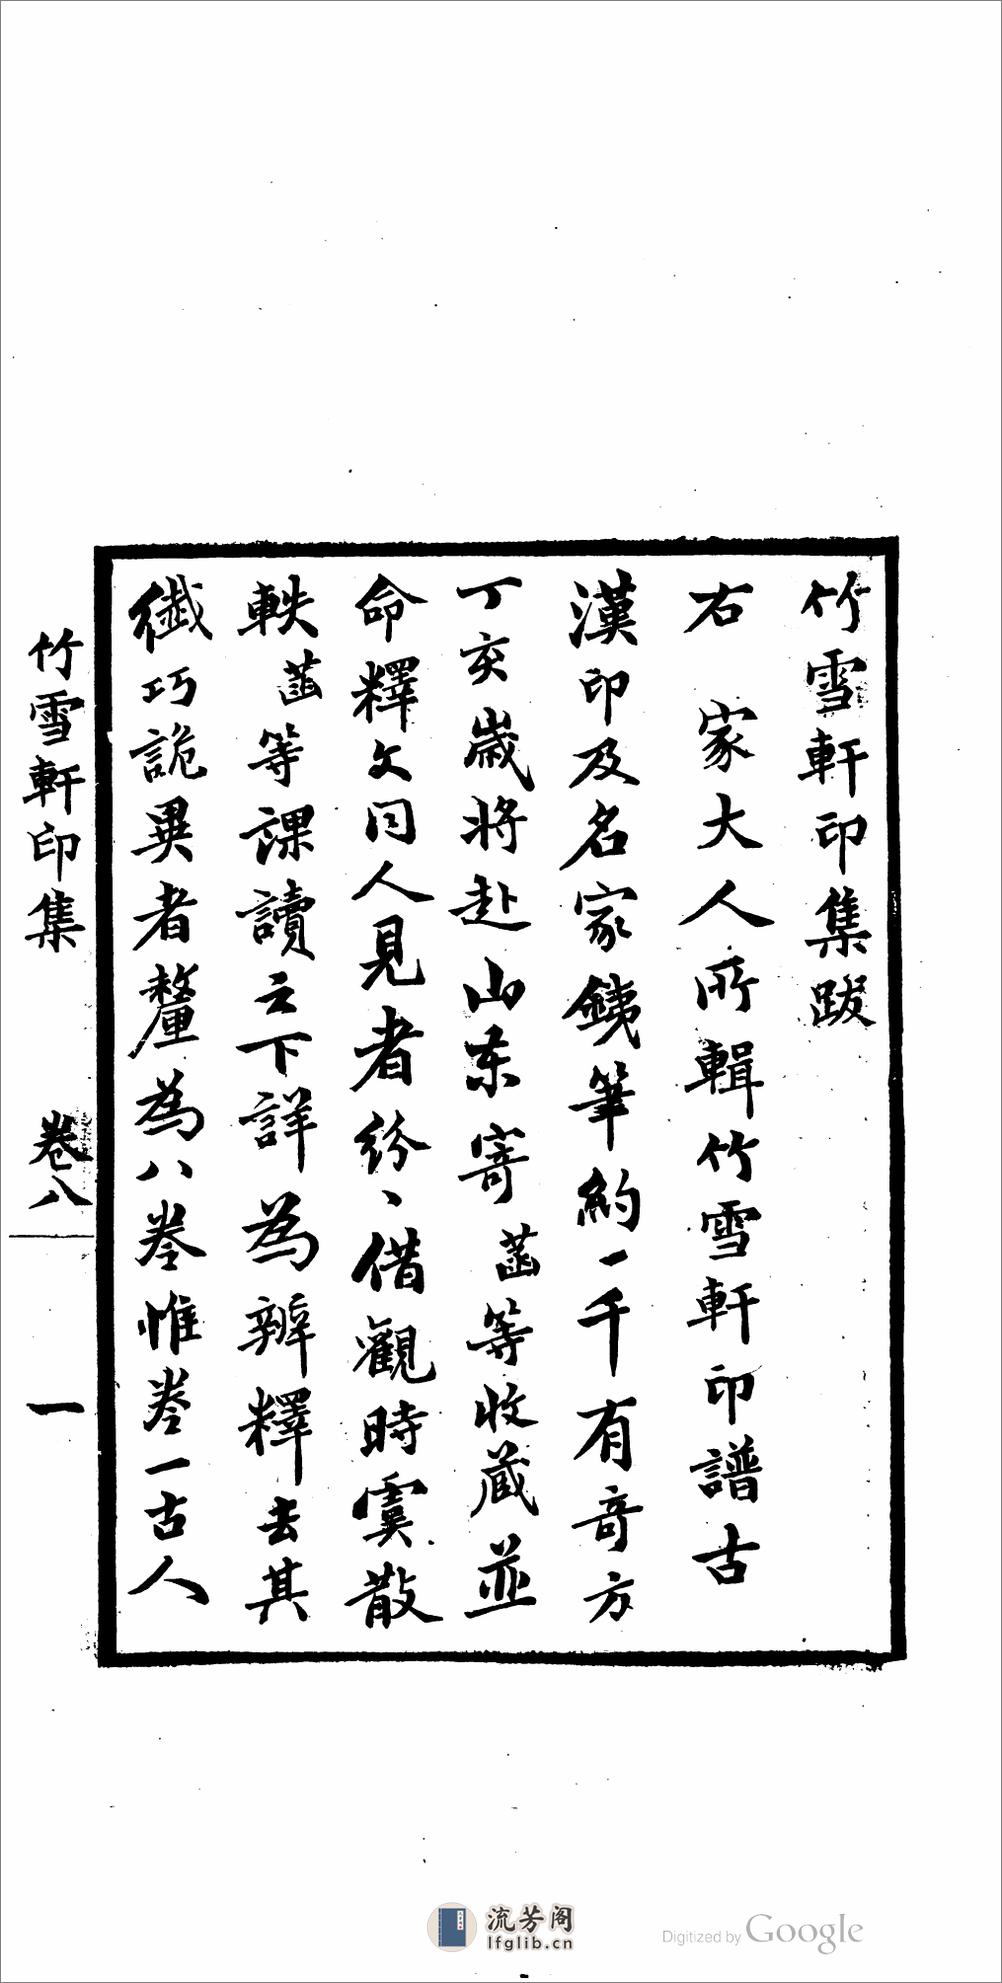 竹雪軒印集跋
右 家大人所輯竹雪軒印譜古
漢印及名家銕筆約一千有奇方
丁亥歲將赴山東寄菡等收藏並
命釋文同人見者紛、借觀時虞散
軼菡等課讀之下詳為辨釋去其
纖巧詭異者釐為八卷惟卷一古人
竹雪軒印集 卷八 一
流芳阁
lfglib.cn
Digitized by Google